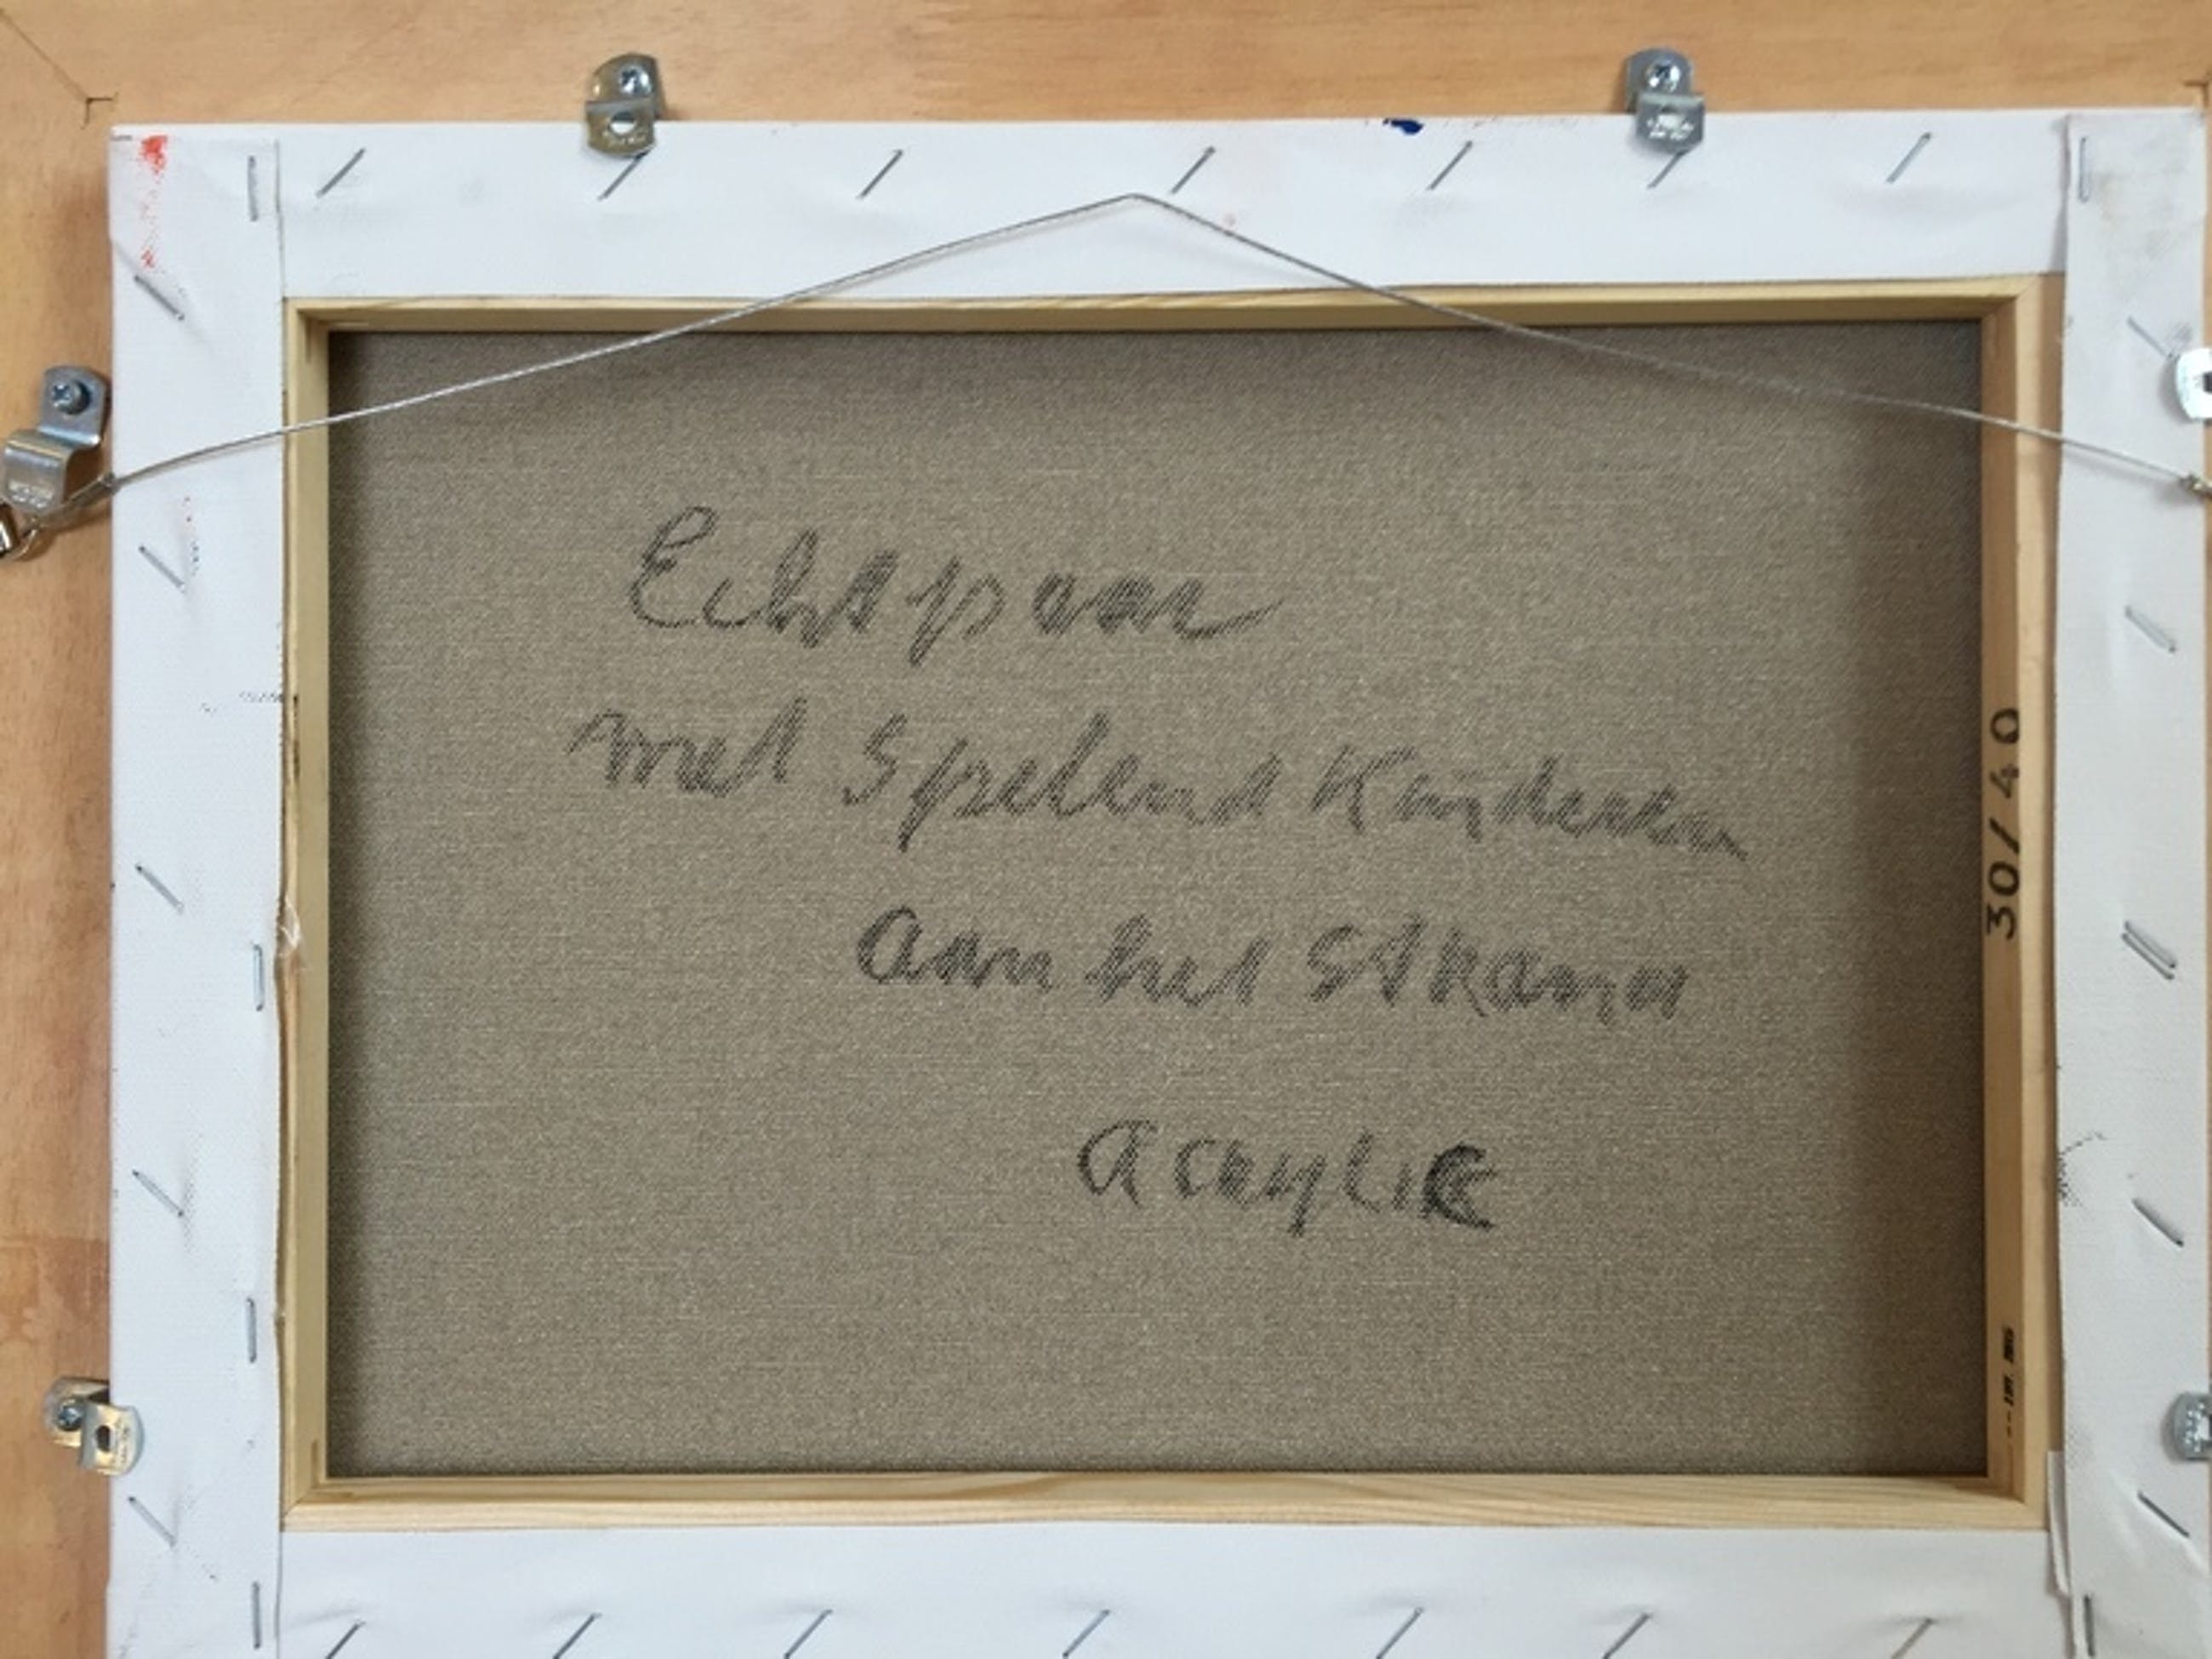 Echtpaar
met Spelend Kinderen
aan het Strand
acrylic
30/40